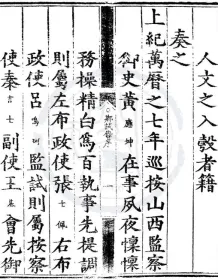 人文之入彀者籍
奏之
上紀萬曆之七年巡按山西監察
御史黃應坤在事夙夜懍懍
鄉試錄序
務操精白為百執事先提調
則屬左布政使張士佩右布
政使呂鳴珂監試則屬按察
使秦吉士副使王基會先御